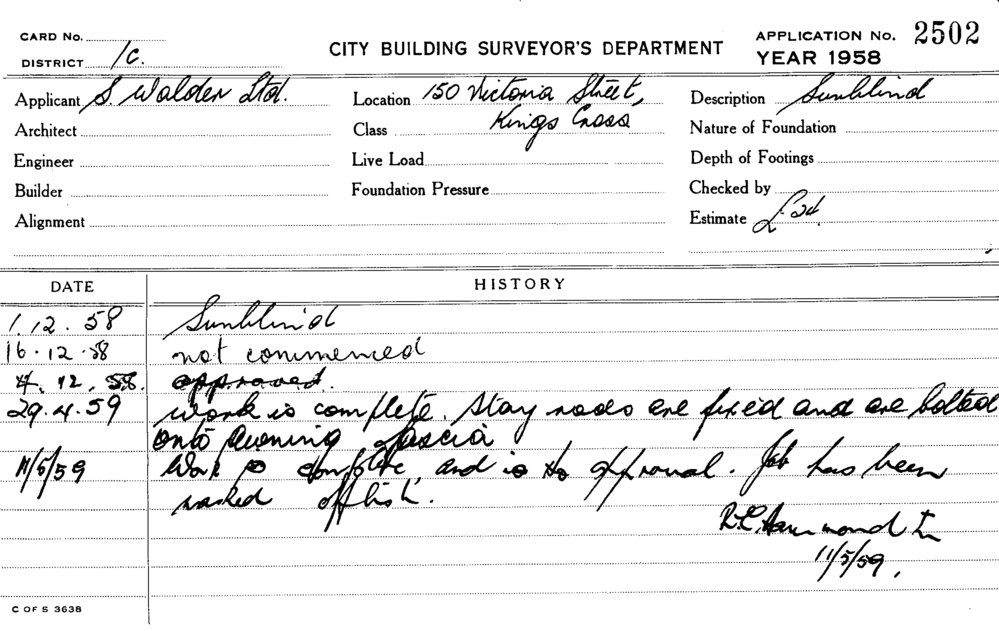 CARD No.
DISTRICT 1C.
CITY BUILDING SURVEYOR'S DEPARTMENT
APPLICATION No. 2502
YEAR 1958
Applicant S. Walder Ltd.
Location 150 Victoria Street,
Kings Cross
Description Sunblind
Architect
Class
Nature of Foundation
Engineer
Live Load
Depth of Footings
Builder
Foundation Pressure
Checked by
Alignment
Estimate
DATE HISTORY
1.12.58 Sunblind
16.12.58 not commenced
4.12.58. approved.
29.4.59 work is complete. Stay rods are fixed and are bolted
onto awning fascia
11/5/59 Work is complete and is to approval. Job has been
marked off list.
11/5/59.
C OF S 3638